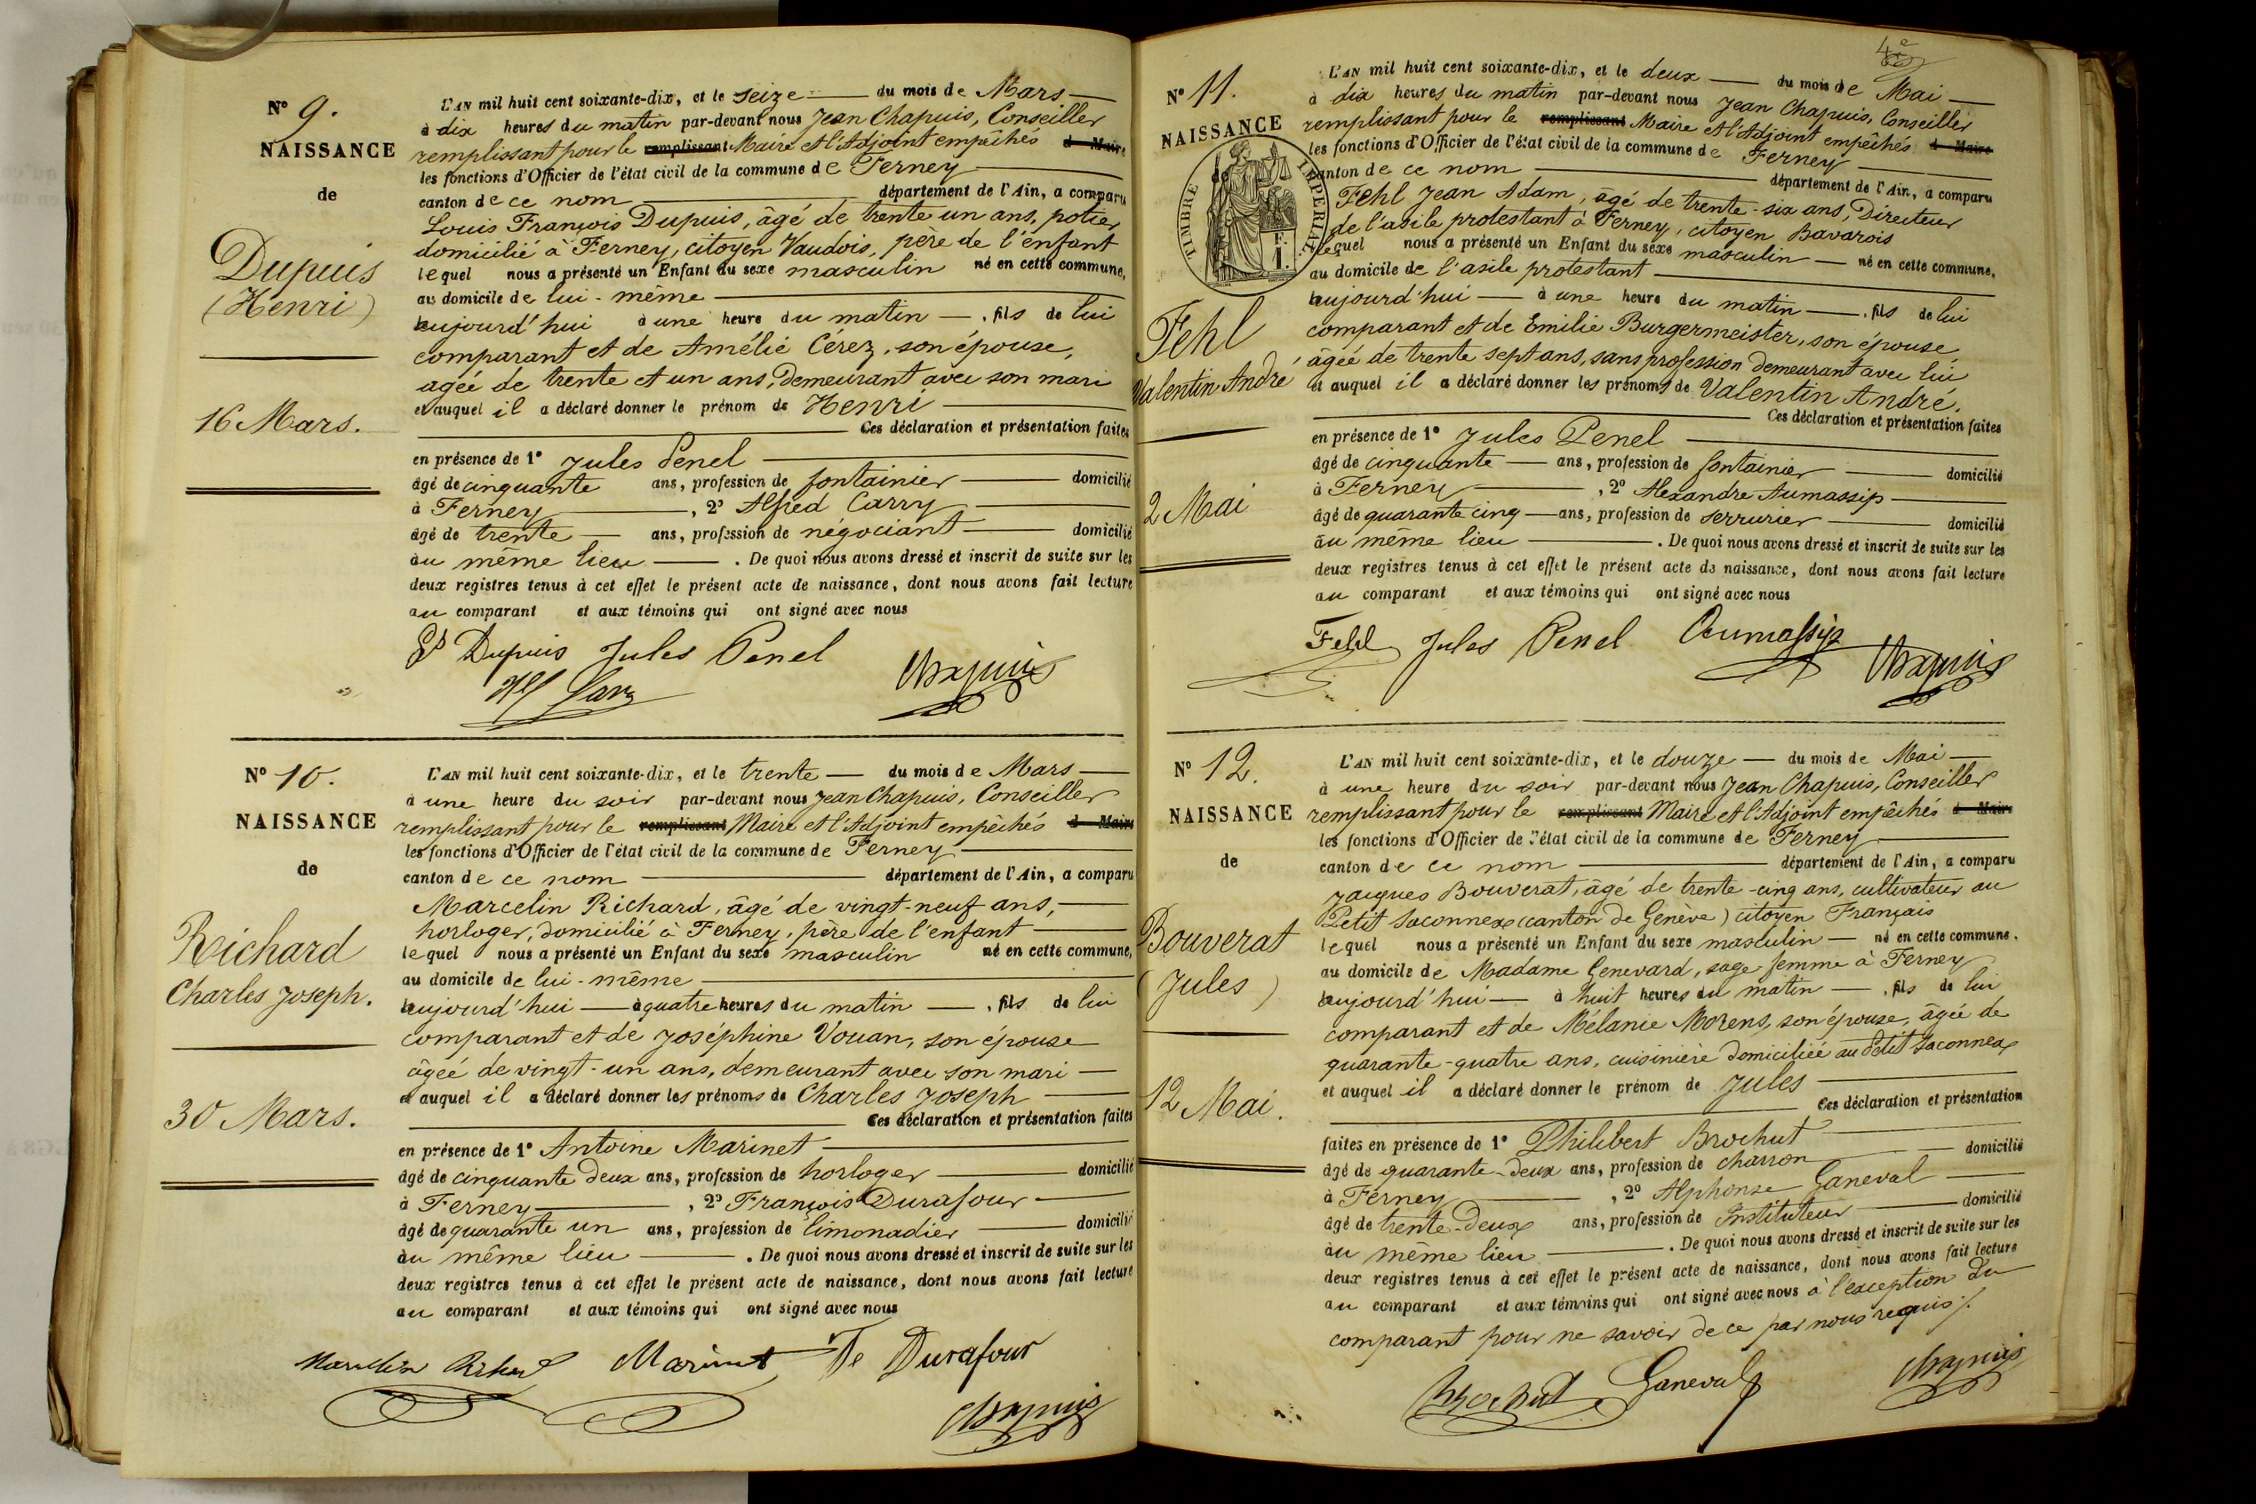 Nº 9.
NAISSANCE
de
Dupuis
(Henri)
16 Mars.
L'AN mil huit cent soixante-dix, et le seize du mois de Mars
à dix heures du matin par-devant nous Jean Chapuis, Conseiller
remplissant pour le remplissant Maire et l'Adjoint empêchés d Maire
les fonctions d'Officier de l'état civil de la commune de Ferney
canton de ce nom département de l'Ain, a comparu
Louis François Dupuis, âgé de trente un ans, potier
domicilié à Ferney, citoyen Vaudois, père de l'enfant
lequel nous a présenté un Enfant du sexe masculin né en cette commune,
au domicile de lui-même
aujourd'hui à une heure du matin, fils de lui
comparant et de Amélie Cérez, son épouse,
agée de trente et un ans, Demeurant avec son mari
et auquel il a déclaré donner le prénom de Henri
Ces déclaration et présentation faites
en présence de 1º Jules Penel
âgé de cinquante ans, profession de fontainier domicilié
à Ferney, 2º Alfred Carry
âgé de trente ans, profession de négociant domicilié
au même lieu. De quoi nous avons dressé et inscrit de suite sur les
deux registres tenus à cet effet le présent acte de naissance, dont nous avons fait lecture
au comparant et aux témoins qui ont signé avec nous
Dupuis Jules Penel
Chapuis
Nº 10.
NAISSANCE
de
Richard
Charles Joseph.
30 Mars.
L'AN mil huit cent soixante-dix, et le trente du mois de Mars
à une heure du soir par-devant nous Jean Chapuis, Conseiller
remplissant pour le remplissant Maire et l'Adjoint empêchés d Maire
les fonctions d'Officier de l'état civil de la commune de Ferney
canton de ce nom département de l'Ain, a comparu
Marcelin Richard, âgé de vingt-neuf ans,
horloger, domicilié à Ferney, père de l'enfant
lequel nous a présenté un Enfant du sexe masculin né en cette commune,
au domicile de lui-même
aujourd'hui à quatre heures du matin, fils de lui
comparant et de Joséphine Vouan, son épouse
âgée de vingt-un ans, demeurant avec son mari
et auquel il a déclaré donner les prénoms de Charles Joseph
Ces déclaration et présentation faites
en présence de 1º Antoine Marinet
âgé de cinquante deux ans, profession de horloger domicilié
à Ferney, 2º François Durafour
âgé de quarante un ans, profession de limonadier domicilié
au même lieu. De quoi nous avons dressé et inscrit de suite sur les
deux registres tenus à cet effet le présent acte de naissance, dont nous avons fait lecture
au comparant et aux témoins qui ont signé avec nous
Marcelin Richard Marinet Durafour
Chapuis
4e
Nº 11.
NAISSANCE
TIMBRE IMPERIAL
F.
1.
Fehl
Valentin André
2 Mai
L'AN mil huit cent soixante-dix, et le deux du mois de Mai
à dix heures du matin par-devant nous Jean Chapuis, Conseiller
remplissant pour le remplissant Maire et l'Adjoint empêchés d Maire
les fonctions d'Officier de l'état civil de la commune de Ferney
canton de ce nom département de l'Ain, a comparu
Fehl Jean Adam, âgé de trente-six ans, Directeur
de l'asile protestant à Ferney, citoyen Bavarois
lequel nous a présenté un Enfant du sexe masculin né en cette commune,
au domicile de l'asile protestant
aujourd'hui à une heure du matin, fils de lui
comparant et de Emilie Burgermeister, son épouse,
âgée de trente sept ans, sans profession demeurant avec lui
et auquel il a déclaré donner les prénoms de Valentin André.
Ces déclaration et présentation faites
en présence de 1º Jules Penel
âgé de cinquante ans, profession de fontainier domicilié
à Ferney, 2º Alexandre Aumassip
âgé de quarante cinq ans, profession de serrurier domicilié
au même lieu. De quoi nous avons dressé et inscrit de suite sur les
deux registres tenus à cet effet le présent acte de naissance, dont nous avons fait lecture
au comparant et aux témoins qui ont signé avec nous
Fehl Jules Penel Aumassip
Chapuis
Nº 12.
NAISSANCE
de
Bouverat
(Jules)
12 Mai.
L'AN mil huit cent soixante-dix, et le douze du mois de Mai
à une heure du soir par-devant nous Jean Chapuis, Conseiller
remplissant pour le remplissant Maire et l'Adjoint empêchés d Maire
les fonctions d'Officier de l'état civil de la commune de Ferney
canton de ce nom département de l'Ain, a comparu
Jaques Bouverat, âgé de trente-cinq ans, cultivateur au
Petit Saconnex (canton de Genève) citoyen Français
lequel nous a présenté un Enfant du sexe masculin né en cette commune,
au domicile de Madame Genevard, sage femme à Ferney
aujourd'hui à huit heures du matin, fils de lui
comparant et de Mélanie Morens, son épouse, âgée de
quarante-quatre ans, cuisinière domiciliée au Petit Saconnex
et auquel il a déclaré donner le prénom de Jules
Ces déclaration et présentation
faites en présence de 1º Philibert Brochut
âgé de quarante-deux ans, profession de charron domicilié
à Ferney, 2º Alphonse Ganeval
âgé de trente-Deux ans, profession de Instituteur domicilié
au même lieu. De quoi nous avons dressé et inscrit de suite sur les
deux registres tenus à cet effet le présent acte de naissance, dont nous avons fait lecture
au comparant et aux témoins qui ont signé avec nous à l'exception du
comparant pour ne savoir de ce par nous requis.
Brochut Ganeval Chapuis